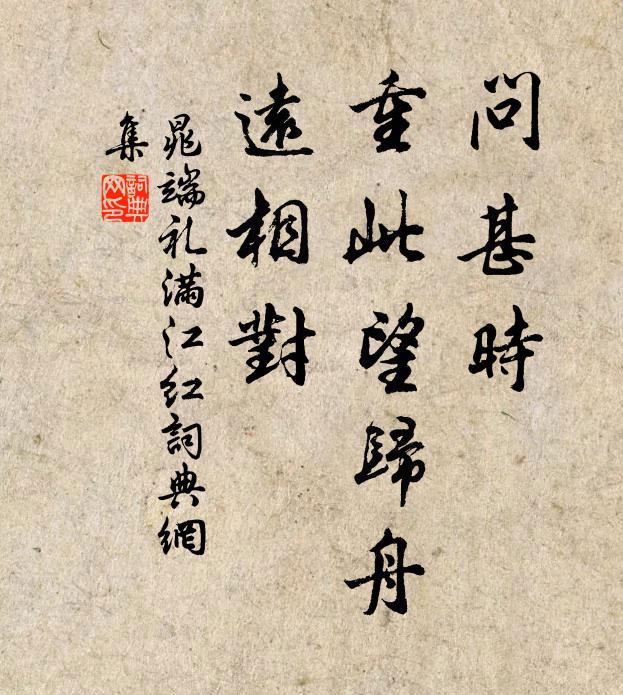 問甚時
重此望歸舟
遠相對
晁端礼满江红詞典網
集
詞典
网印